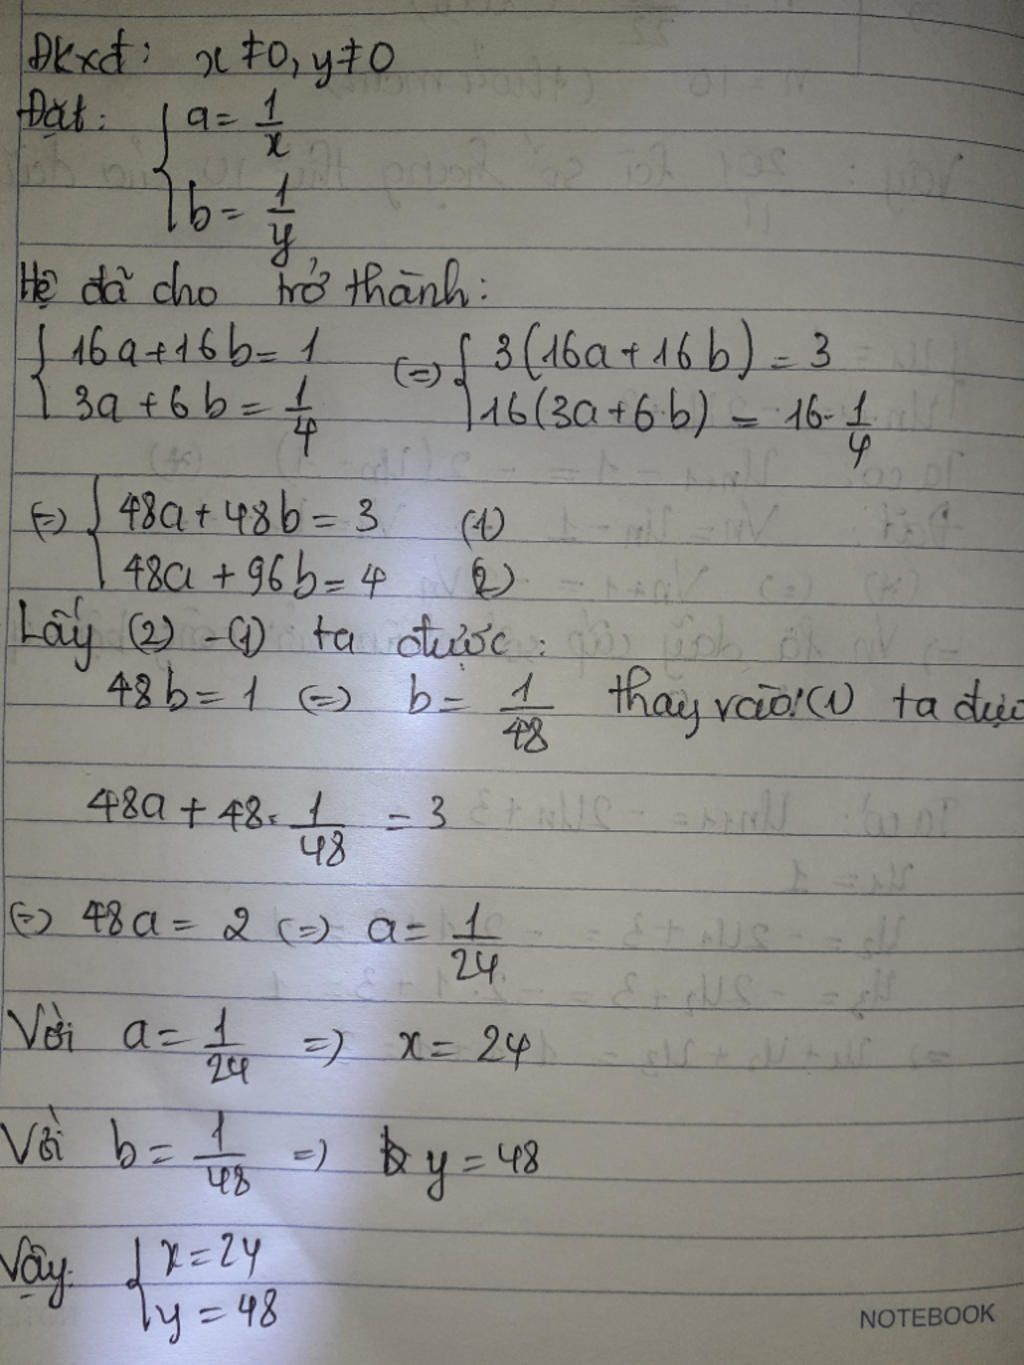 ĐKxđ: x ≠ 0, y ≠ 0
Đặt: { a = 1/x
b = 1/y
Hệ đã cho trở thành:
{ 16a + 16b = 1 (=) { 3(16a + 16b) = 3
3a + 6b = 1/4 16(3a + 6b) = 16 · 1/4
(=) { 48a + 48b = 3 (1)
48a + 96b = 4 (2)
Lấy (2) - (1) ta được:
48b = 1 (=) b = 1/48 thay vào (1) ta đượ
48a + 48 · 1/48 = 3
(=) 48a = 2 (=) a = 1/24
Với a = 1/24 =) x = 24
Với b = 1/48 =) y = 48
Vậy: { x = 24
y = 48
NOTEBOOK